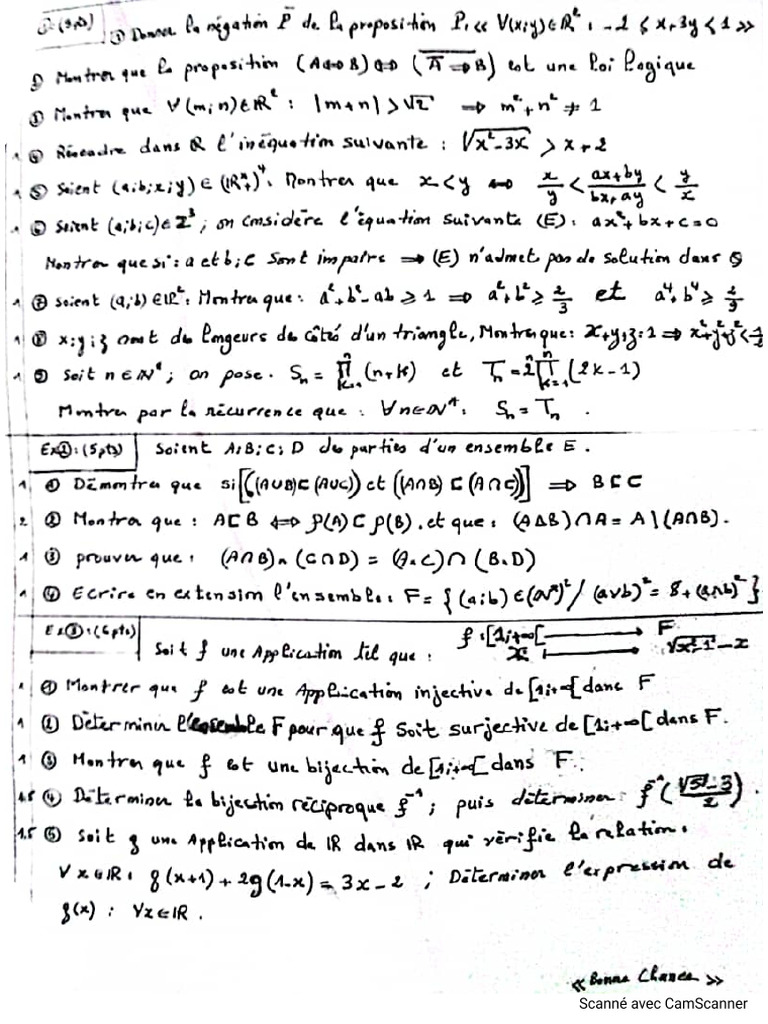 ① Donner la négation P̄ de la proposition P: « ∀(x;y)∈ℝ² : -2 < x+3y < 1 »
② Montrer que la proposition (A⟺B)⟺( A⟹B) est une loi logique
③ Montrer que ∀(m;n)∈ℝ² : |m+n| > √2 ⟹ m²+n² ≠ 1
1 ④ Résoudre dans ℝ l'inéquation suivante : √(x²-3x) > x+2
1 ⑤ Soient (a;b;x;y) ∈ (ℝ*₊)⁴. Montrer que x<y ⟺ x/y < (ax+by)/(bx+ay) < y/x
1 ⑥ Soient (a;b;c)∈ℤ³ ; on considère l'équation suivante (E): ax²+bx+c=0
Montrer que si : a et b ; c sont impairs ⟹ (E) n'admet pas de solution dans ℚ
1 ⑦ soient (a;b)∈ℝ² : Montrer que : a²+b²-ab ≥ 1 ⟹ a²+b² ≥ 2/3 et a⁴+b⁴ ≥ 2/9
1 ⑧ x;y;z sont des longeurs de côtés d'un triangle, Montrer que: x+y+z=1 ⟹ x²+y²+z² < 1/2
1 ⑨ Soit n∈ℕ* ; on pose. Sₙ = ∏ₖ₌₁ⁿ (n+k) et Tₙ = 2ⁿ∏ₖ₌₁ⁿ (2k-1)
Montrer par la récurrence que : ∀n∈ℕ*: Sₙ = Tₙ .
Ex②:(5pts) Soient A;B;C;D des parties d'un ensemble E.
1 ① Démontrer que si[((A∪B)⊂(A∪C)) et ((A∩B)⊂(A∩C))] ⟹ B⊂C
2 ② Montrer que : A⊂B ⟺ P(A)⊂P(B). et que : (AΔB)∩A = A\(A∩B).
1 ③ prouver que : (A∩B)×(C∩D) = (A×C)∩(B×D)
1 ④ Ecrire en extension l'ensemble: F={(a;b)∈(ℕ*)²/ (a∨b)² = 8+(a∧b)²}
Ex③:(6pts) Soit f une Application tel que : f:[1;+∞[ ⟶ F
x ⟼ √(x²-1) - x
1 ① Montrer que f est une Application injective de [1;+∞[ dans F
1 ② Déterminer l'ensemble F pour que f soit surjective de [1;+∞[ dans F.
1 ③ Montrer que f est une bijection de [1;+∞[ dans F.
1.5 ④ Déterminer la bijection réciproque f⁻¹ ; puis déterminer f⁻¹((√5-3)/2).
1.5 ⑤ Soit g une Application de ℝ dans ℝ qui vérifie la relation :
∀x∈ℝ : g(x+1)+2g(1-x)=3x-2 ; Déterminer l'expression de
g(x) : ∀x∈ℝ.
« Bonne Chance »
Scanné avec CamScanner